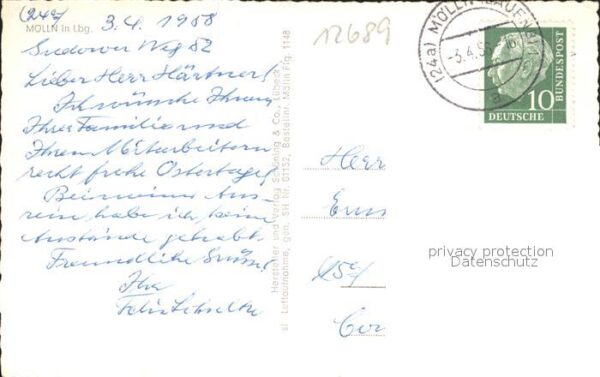 (24a)
MÖLLN in Lbg. 3.4.1958
Weg 52
Lieber Herr Härtner!
Ich wünsche Ihnen,
Ihrer Familie und
Ihren Mitarbeitern
recht frohe Ostertage!
Bei meiner Aus-
reise habe ich keine
Anstände gehabt.
Freundliche Grüsse!
Ihr
Felix
Hersteller und Verlag Schöning & Co., Lübeck
sl Luftaufnahme, gen. SH Nr. 01152, Bestellnr. Mölln Flg. 1148
12689
(24a) MÖLLN
-3.4.5
a
10
DEUTSCHE
BUNDESPOST
Herr
privacy protection
Datenschutz